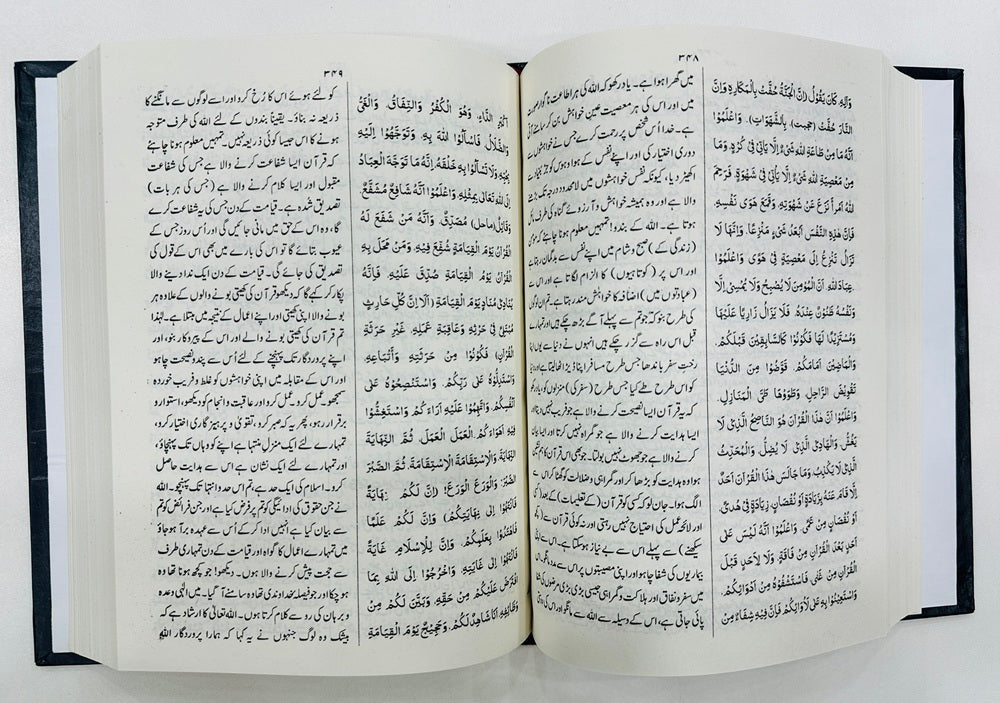 ۳۴۸
وَاٰلِهٖ كَانَ يَقُوْلُ: (اِنَّ الْجَنَّةَ حُفَّتْ بِالْمَكَارِهِ وَاِنَّ
النَّارَ حُفَّتْ (حجبت)، بِالشَّهَوَاتِ). وَاعْلَمُوْا
اَنَّهٗ مَا مِنْ طَاعَةِ اللهِ شَيْءٌ اِلَّا يَاْتِيْ فِيْ كُرْهٍ، وَمَا
مِنْ مَعْصِيَةِ اللهِ شَيْءٌ اِلَّا يَاْتِيْ فِيْ شَهْوَةٍ. فَرَحِمَ
اللهُ امْرَأً نَزَعَ عَنْ شَهْوَتِهٖ، وَقَمَعَ هَوٰى نَفْسِهٖ،
فَاِنَّ هٰذِهِ النَّفْسَ اَبْعَدُ شَيْءٍ مَنْزِعًا. وَاِنَّهَا لَا
تَزَالُ تَنْزِعُ اِلٰى مَعْصِيَةٍ فِيْ هَوًى وَاعْلَمُوْا
عِبَادَ اللهِ اَنَّ الْمُؤْمِنَ لَا يُصْبِحُ وَلَا يُمْسِيْ اِلَّا
وَنَفْسُهٗ ظَنُوْنٌ عِنْدَهٗ، فَلَا يَزَالُ زَارِيًا عَلَيْهَا
وَمُسْتَزِيْدًا لَهَا فَكُوْنُوْا كَالسَّابِقِيْنَ قَبْلَكُمْ،
وَالْمَاضِيْنَ اَمَامَكُمْ. قَوَّضُوْا مِنَ الدُّنْيَا
تَقْوِيْضَ الرَّاحِلِ، وَطَوَوْهَا طَيَّ الْمَنَازِلِ.
وَاعْلَمُوْا اَنَّ هٰذَا الْقُرْاٰنَ هُوَ النَّاصِحُ الَّذِيْ لَا
يَغُشُّ، وَالْهَادِي الَّذِيْ لَا يُضِلُّ، وَالْمُحَدِّثُ
الَّذِيْ لَا يَكْذِبُ، وَمَا جَالَسَ هٰذَا الْقُرْاٰنَ اَحَدٌ
اِلَّا قَامَ عَنْهُ بِزِيَادَةٍ اَوْ نُقْصَانٍ، زِيَادَةٍ فِيْ هُدًى،
اَوْ نُقْصَانٍ مِنْ عَمًى. وَاعْلَمُوْا اَنَّهٗ لَيْسَ عَلٰى
اَحَدٍ بَعْدَ الْقُرْاٰنِ مِنْ فَاقَةٍ، وَلَا لِاَحَدٍ قَبْلَ
الْقُرْاٰنِ مِنْ غِنًى. فَاسْتَشْفُوْهُ مِنْ اَدْوَائِكُمْ،
وَاسْتَعِيْنُوْا بِهٖ عَلٰى لَاْوَائِكُمْ، فَاِنَّ فِيْهِ شِفَاءً مِنْ
میں گھرا ہوا ہے۔ یاد رکھو کہ اللہ کی ہر اطاعت ناگوار صورت
میں اور اس کی ہر معصیت عین خواہش بن کر سامنے آتی
ہے۔ خدا اُس شخص پر رحمت کرے جس نے خواہشوں سے
دوری اختیار کی اور اپنے نفس کے ہوا و ہوس کو جڑ بنیاد سے
اکھیڑ دیا، کیونکہ نفس خواہشوں میں لامحدود درجہ تک بڑھنے
والا ہے اور وہ ہمیشہ خواہش و آرزوئے گناہ کی طرف مائل
ہوتا ہے۔ اللہ کے بندو! تمہیں معلوم ہونا چاہئے کہ مومن
(زندگی کے) صبح و شام میں اپنے نفس سے بدگمان رہتا ہے
اور اس پر (کوتاہیوں) کا الزام لگاتا ہے اور اس سے
(عبادتوں میں) اضافہ کا خواہش مند رہتا ہے۔ تم ان لوگوں
کی طرح بنو کہ جو تم سے پہلے آگے بڑھ چکے ہیں اور تمہارے
قبل اس راہ سے گزر چکے ہیں انہوں نے دنیا سے یوں اپنا
رختِ سفر باندھا جس طرح مسافر اپنا ڈیرا اٹھا لیتا ہے اور دنیا
کو اس طرح طے کیا جس طرح (سفر کی) منزلوں کو، یاد رکھو
کہ یہ قرآن ایسا نصیحت کرنے والا ہے جو فریب نہیں دیتا اور
ایسا ہدایت کرنے والا ہے جو گمراہ نہیں کرتا اور ایسا بیان
کرنے والا ہے جو جھوٹ نہیں بولتا۔ جو بھی اس قرآن کا ہم نشین
ہوا وہ ہدایت کو بڑھا کر اور گمراہی و ضلالت کو گھٹا کر اس سے
الگ ہوا۔ جان لو کہ کسی کو قرآن (کے تعلیمات) کے بعد (کسی
اور لائحہ عمل کی احتیاج نہیں رہتی اور نہ کوئی قرآن سے (کچھ
سیکھنے) سے پہلے اس سے بے نیاز ہو سکتا ہے۔ اس سے اپنی
بیماریوں کی شفا چاہو اور اپنی مصیبتوں پر اس سے مدد مانگو۔ اس
میں کفر و نفاق اور ہلاکت و گمراہی جیسی بڑی بڑی مرضوں کی شفا
پائی جاتی ہے، اس کے وسیلہ سے اللہ سے مانگو اور اس کی دوستی
۳۴۹
اَكْبَرِ الدَّاءِ، وَهُوَ الْكُفْرُ وَالنِّفَاقُ، وَالْغَيُّ
وَالضَّلَالُ، فَاسْاَلُوا اللهَ بِهٖ، وَتَوَجَّهُوْا اِلَيْهِ
بِحُبِّهٖ، وَلَا تَسْاَلُوْا بِهٖ خَلْقَهٗ، اِنَّهٗ مَا تَوَجَّهَ الْعِبَادُ
اِلَى اللهِ تَعَالٰى بِمِثْلِهٖ. وَاعْلَمُوْا اَنَّهٗ شَافِعٌ مُشَفَّعٌ
وَقَائِلٌ (ماحل) مُصَدَّقٌ، وَاَنَّهٗ مَنْ شَفَعَ لَهُ
الْقُرْاٰنُ يَوْمَ الْقِيَامَةِ شُفِّعَ فِيْهِ، وَمَنْ مَحَلَ بِهِ
الْقُرْاٰنُ يَوْمَ الْقِيَامَةِ صُدِّقَ عَلَيْهِ، فَاِنَّهٗ
يُنَادِيْ مُنَادٍ يَوْمَ الْقِيَامَةِ: (اَلَا اِنَّ كُلَّ حَارِثٍ
مُبْتَلًى فِيْ حَرْثِهٖ وَعَاقِبَةِ عَمَلِهٖ، غَيْرَ حَرَثَةِ
الْقُرْاٰنِ) فَكُوْنُوْا مِنْ حَرَثَتِهٖ وَاَتْبَاعِهٖ،
وَاسْتَدِلُّوْهُ عَلٰى رَبِّكُمْ، وَاسْتَنْصِحُوْهُ عَلٰى
اَنْفُسِكُمْ، وَاتَّهِمُوْا عَلَيْهِ اٰرَاءَكُمْ، وَاسْتَغِشُّوْا
فِيْهِ اَهْوَاءَكُمْ. الْعَمَلَ الْعَمَلَ، ثُمَّ النِّهَايَةَ
النِّهَايَةَ وَالْاِسْتِقَامَةَ الْاِسْتِقَامَةَ، ثُمَّ الصَّبْرَ
الصَّبْرَ، وَالْوَرَعَ الْوَرَعَ! (اِنَّ لَكُمْ نِهَايَةً
فَانْتَهُوْا اِلٰى نِهَايَتِكُمْ) وَاِنَّ لَكُمْ عَلَمًا
فَاهْتَدُوْا بِعَلَمِكُمْ، وَاِنَّ لِلْاِسْلَامِ غَايَةً
فَانْتَهُوْا اِلٰى غَايَتِهٖ، وَاخْرُجُوْا اِلَى اللهِ مِمَّا
افْتَرَضَ عَلَيْكُمْ مِنْ حَقِّهٖ، وَبَيَّنَ لَكُمْ مِنْ
وَظَائِفِهٖ. اَنَا شَاهِدٌ لَكُمْ، وَحَجِيْجٌ يَوْمَ الْقِيَامَةِ
کو لئے ہوئے اس کا رُخ کرو اور اسے لوگوں سے مانگنے کا
ذریعہ نہ بناؤ۔ یقیناً بندوں کے لئے اللہ کی طرف متوجہ
ہونے کا اس جیسا کوئی ذریعہ نہیں۔ تمہیں معلوم ہونا چاہئے
کہ قرآن ایسا شفاعت کرنے والا ہے جس کی شفاعت
مقبول اور ایسا کلام کرنے والا ہے (جس کی ہر بات)
تصدیق شدہ ہے۔ قیامت کے دن جس کی یہ شفاعت کرے
گا، وہ اس کے حق میں مانی جائیں گی اور اُس روز جس کے
عیوب بتائے گا تو اس کی بارے میں بھی اس کے قول کی
تصدیق کی جائے گی۔ قیامت کے دن ایک ندا دینے والا
پکار کر کہے گا کہ دیکھو قرآن کی کھیتی بونے والوں کے علاوہ ہر
بونے والا اپنی کھیتی اور اپنے اعمال کے نتیجہ میں مبتلا ہے۔ لہٰذا
تم قرآن کی کھیتی بونے والے اور اس کے پیروکار بنو، اور
اپنے پروردگار تک پہنچنے کے لئے اُس سے پند و نصیحت چاہو
اور اس کے مقابلہ میں اپنی خواہشوں کو غلط و فریب خوردہ
سمجھو عمل کرو۔ عمل کرو اور عاقبت و انجام کو دیکھو، استوار و
برقرار رہو، پھر یہ کہ صبر کرو، تقویٰ و پرہیزگاری اختیار کرو،
تمہارے لئے ایک منزل منتہا ہے اپنے کو وہاں تک پہنچاؤ،
اور تمہارے لئے ایک نشان ہے اس سے ہدایت حاصل
کرو۔ اسلام کی ایک حد ہے، تم اس حد و انتہا تک پہنچو۔ اللہ
نے جن حقوق کی ادائیگی کو تم پر فرض کیا ہے اور جن فرائض کو تم
سے بیان کیا ہے انہیں ادا کر کے اُس سے عہدہ برآ ہو جاؤ
میں تمہارے اعمال کا گواہ اور قیامت کے دن تمہاری طرف
سے حجت پیش کرنے والا ہوں۔ دیکھو! جو کچھ ہونا تھا وہ
ہو چکا اور جو فیصلہ خداوندی تھا وہ سامنے آ گیا۔ میں الٰہی وعدہ
و برہان کی رو سے کلام کرتا ہوں۔ اللہ تعالیٰ کا ارشاد ہے کہ
بیشک وہ لوگ جنہوں نے یہ کہا کہ ہمارا پروردگار اللہ